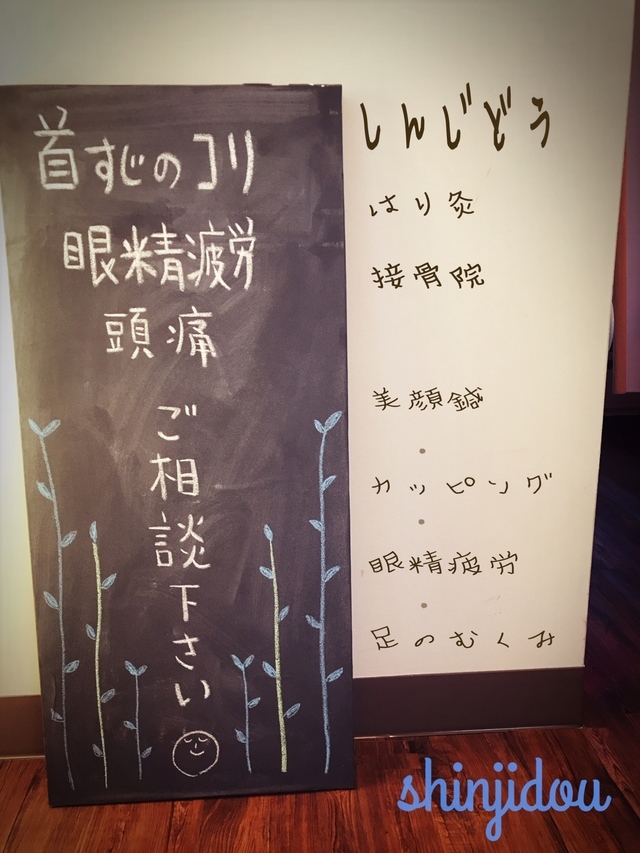 首すじのコリ
眼精疲労
頭痛
ご相談下さい
しんじどう
はり灸
接骨院
美顔鍼
・
カッピング
・
眼精疲労
・
足のむくみ
shinjidou